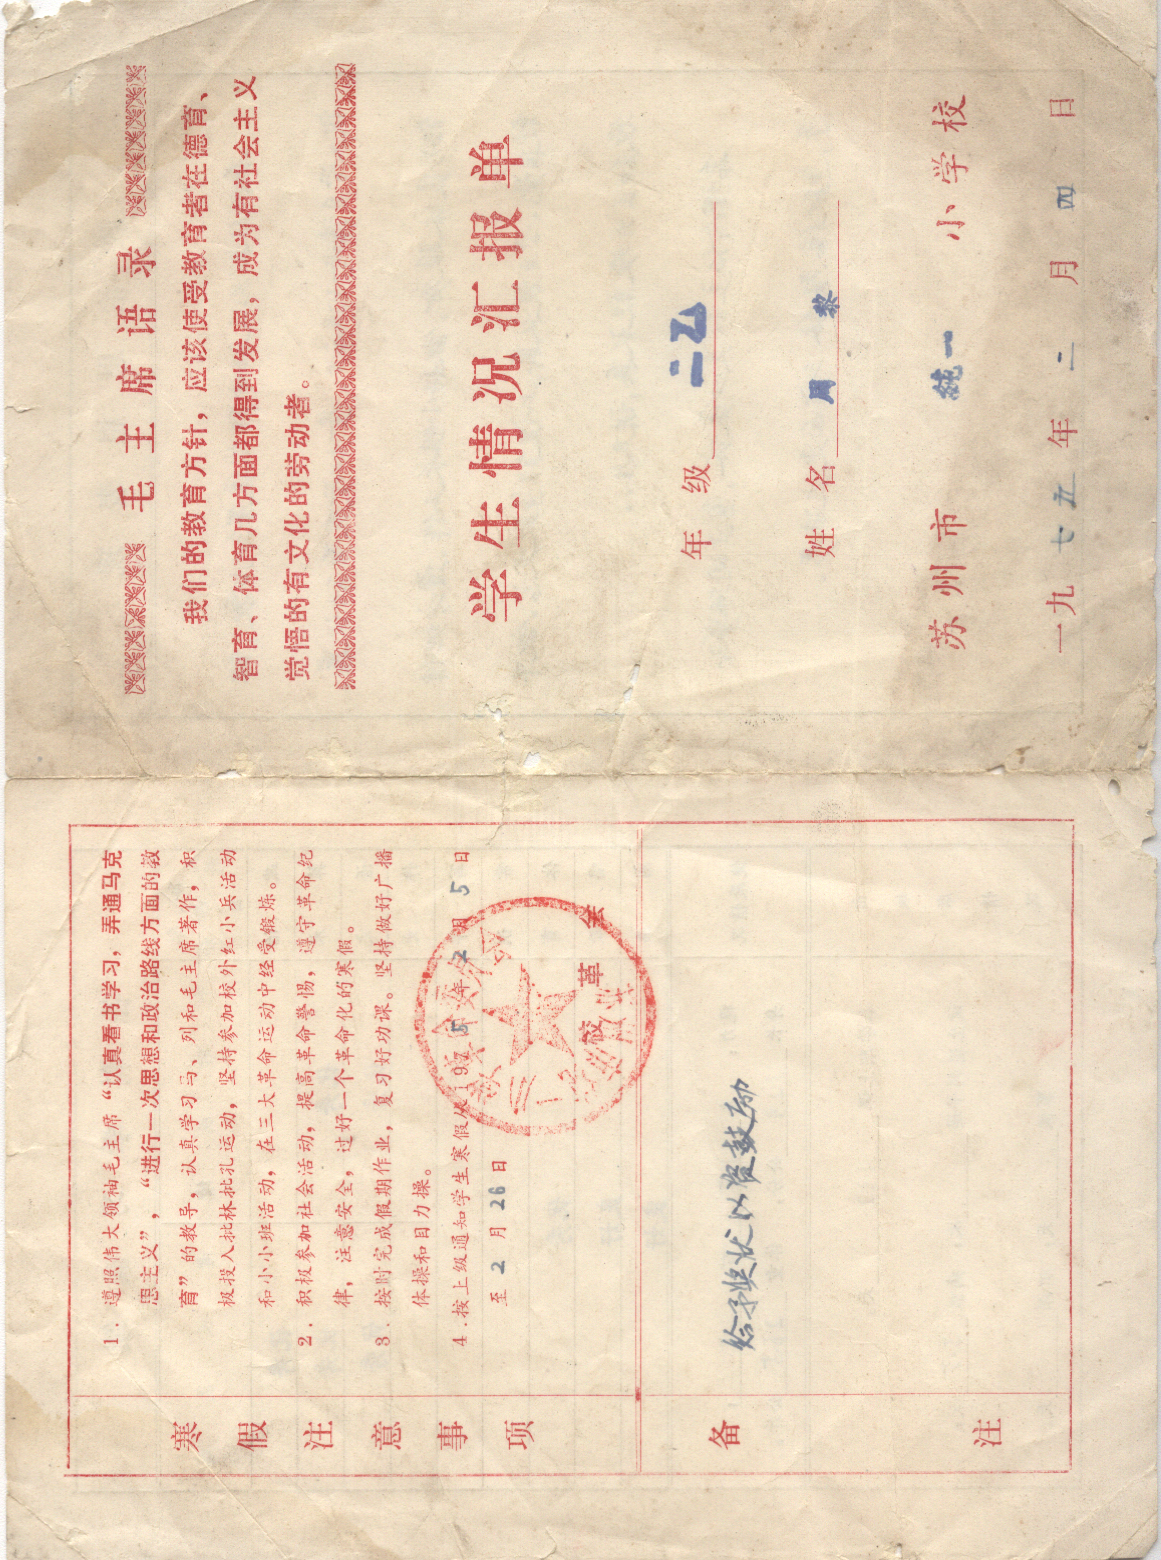 毛主席语录
我们的教育方针，应该使受教育者在德育、
智育、体育几方面都得到发展，成为有社会主义
觉悟的有文化的劳动者。
学生情况汇报单
年级 二乙
姓名 周黎
苏州市 純一 小学校
一九七五年二月四日
寒假注意事项
1．遵照伟大领袖毛主席“认真看书学习，弄通马克
思主义”，“进行一次思想和政治路线方面的教
育”的教导，认真学习马、列和毛主席著作，积
极投入批林批孔运动，坚持参加校外红小兵活动
和小小班活动，在三大革命运动中经受锻炼。
2．积极参加社会活动，提高革命警惕，遵守革命纪
律，注意安全，过好一个革命化的寒假。
3．按时完成假期作业，复习好功课。坚持做好广播
体操和目力操。
4．按上级通知学生寒假从1975年2月5日
至2月26日
校革会
备注
给予奖状以资鼓励